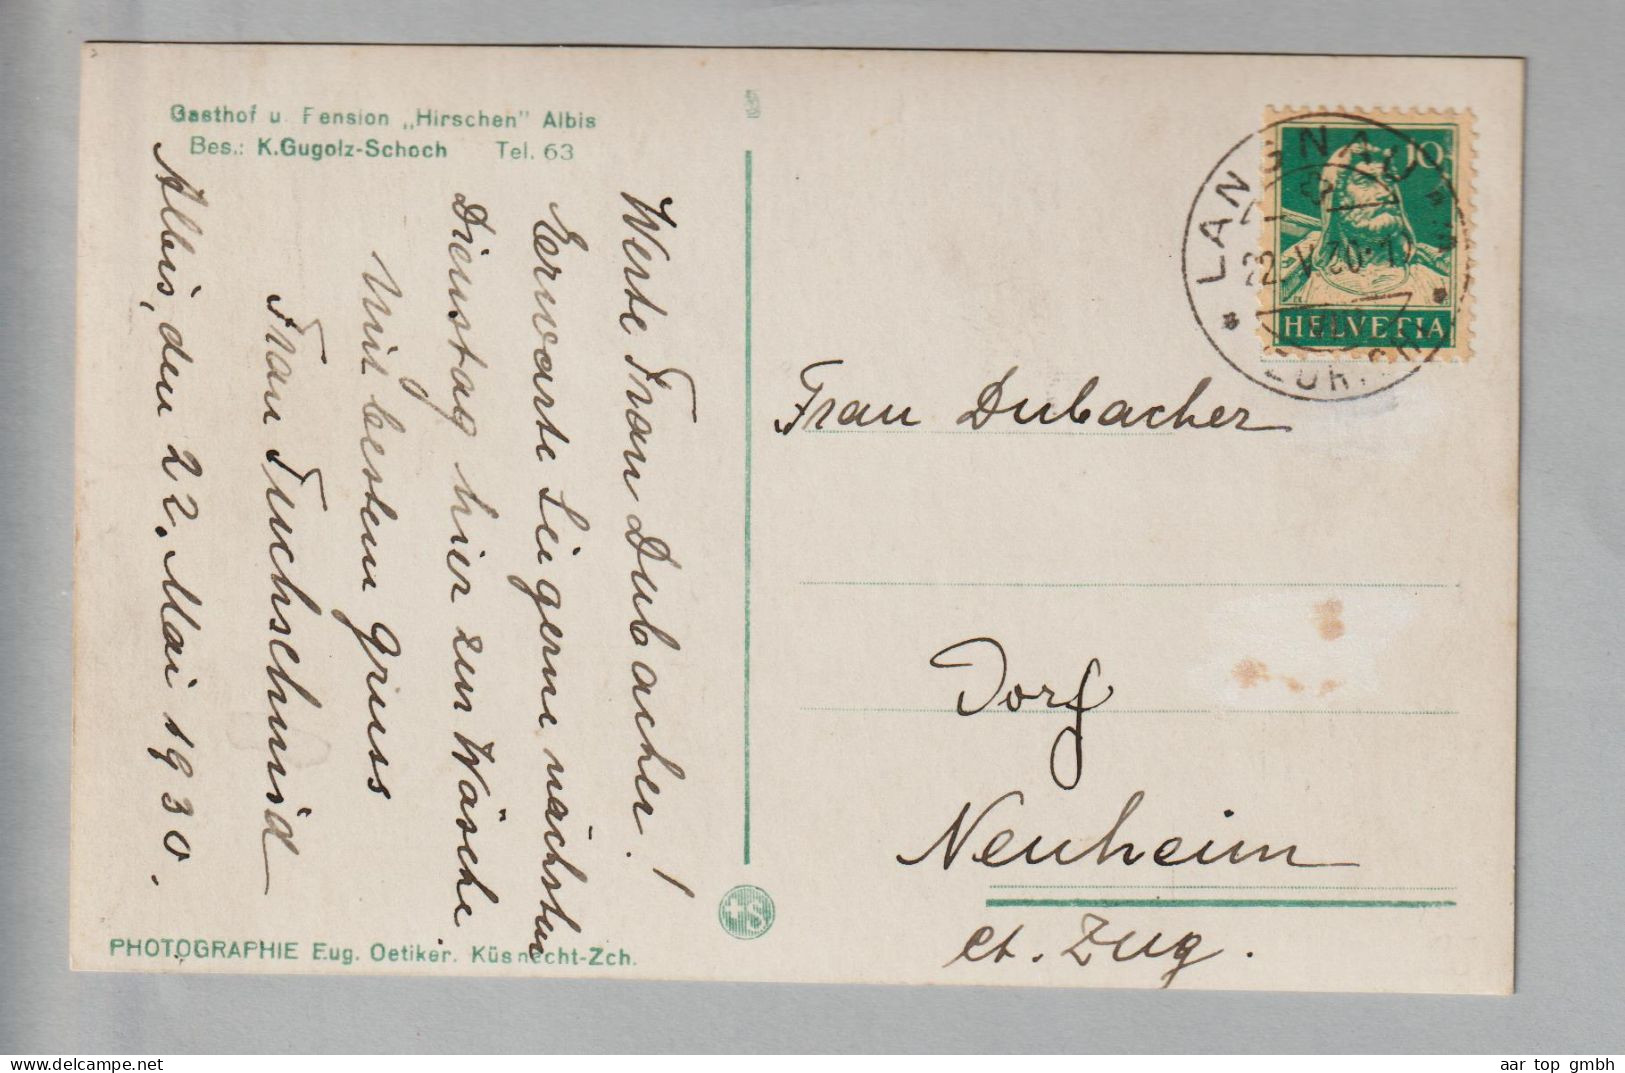 Gasthof u. Pension „Hirschen" Albis
Bes.: K.Gugolz-Schoch Tel. 63
Werte Frau Dubacher!
Erwarte Sie gerne nächsten
Dienstag hier zur Wäsche.
Mit bestem Gruss
Frau Fuchsschmid
Albis, den 22. Mai 1930.
PHOTOGRAPHIE Eug. Oetiker. Küsnacht-Zch.
LANGNAU
22. V. 30.
ZÜRICH
10
HELVETIA
Frau Dubacher
Dorf
Neuheim
Ct. Zug.
aar top gmbh